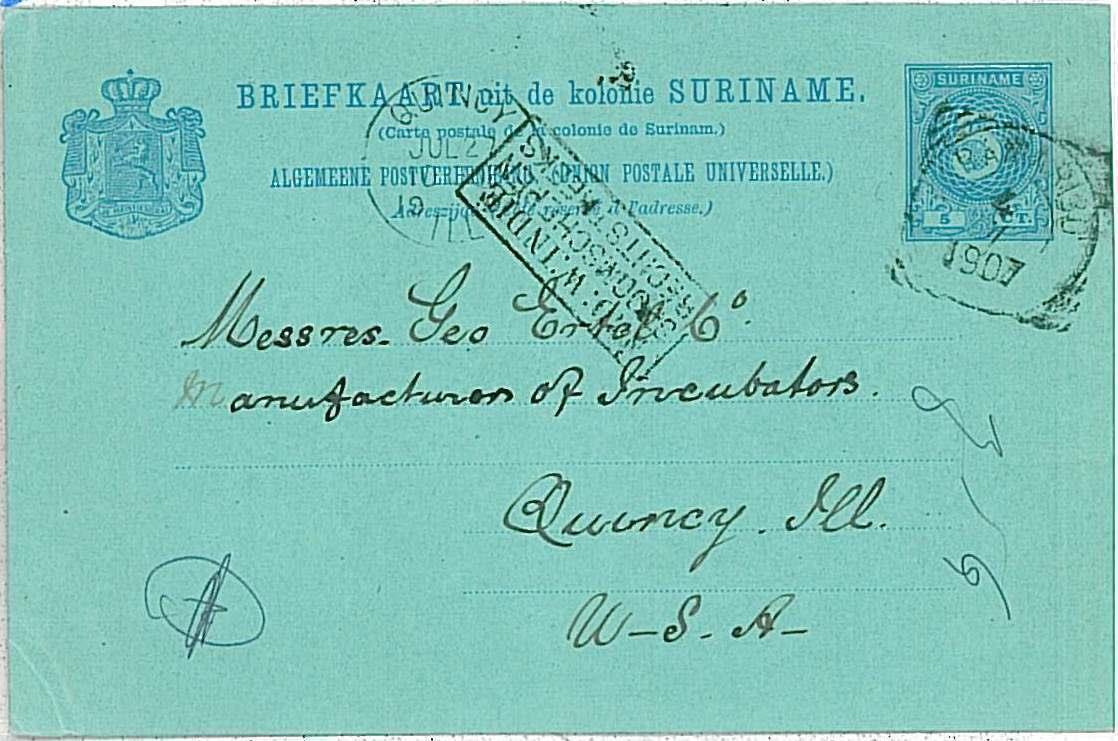 BRIEFKAART uit de kolonie SURINAME.
(Carte postale de la colonie de Surinam.)
ALGEMEENE POSTVEREENIGING (UNION POSTALE UNIVERSELLE.)
Adreszijde. (Côté réservé à l'adresse.)
SURINAME
5 CT.
QUINCY
JUL 2
ILL
NED. W. INDIË
RECHTSTREEKS
1907
Messres. Geo Ertel Co.
Manufacturers of Incubators.
Quincy. Ill.
U-S. A-